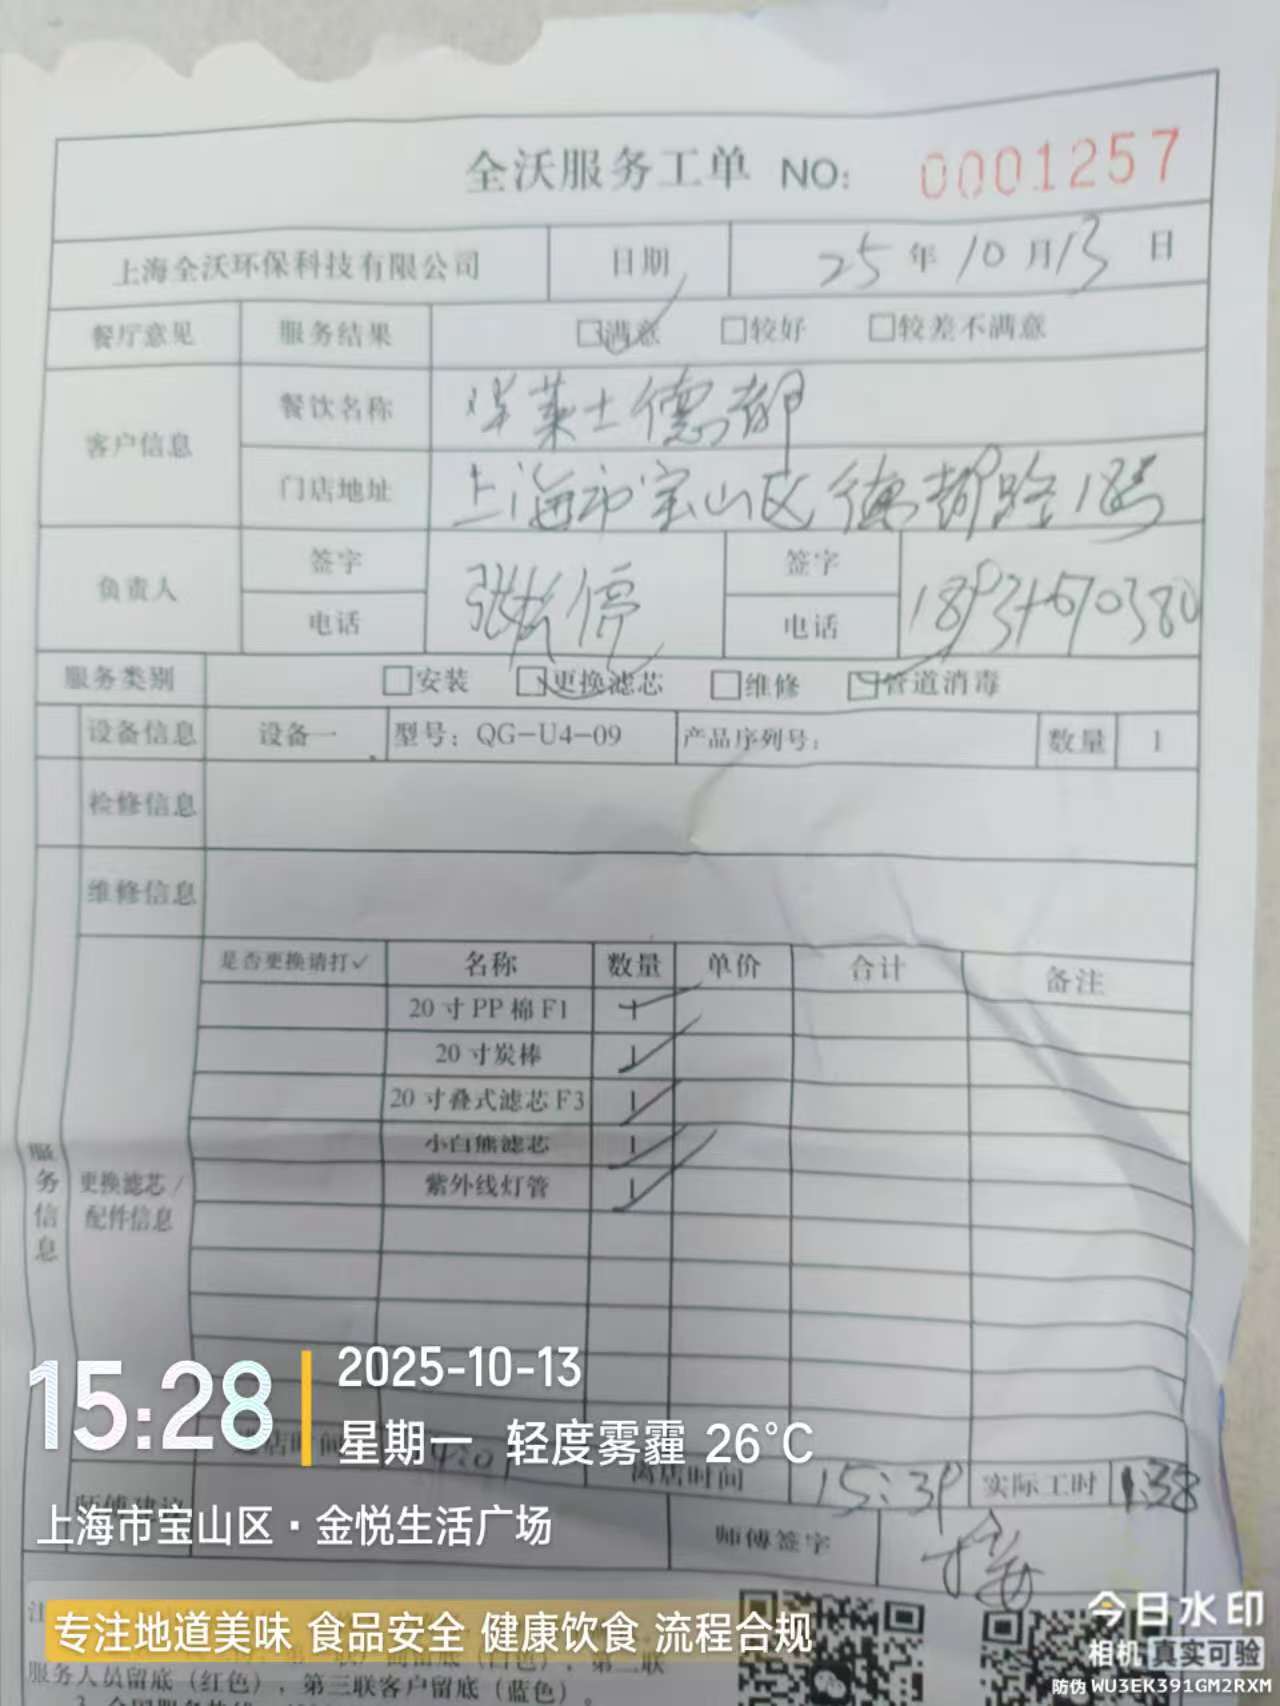 全沃服务工单 NO: 0001257
上海全沃环保科技有限公司 日期 25年10月13日
餐厅意见 服务结果 □满意 □较好 □较差不满意
客户信息 餐饮名称 华莱士德都
门店地址 上海市宝山区德都路18号
负责人 签字 签字
电话 电话
服务类别 □安装 □更换滤芯 □维修 □管道消毒
设备信息 设备一 型号：QG-U4-09 产品序列号： 数量 1
检修信息
维修信息
服务信息
更换滤芯/配件信息
是否更换请打✓ 名称 数量 单价 合计 备注
20寸PP棉F1 1
20寸炭棒 1
20寸叠式滤芯F3 1
小白熊滤芯 1
紫外线灯管 1
离店时间 15:39 实际工时 1:38
师傅签字
15:28
2025-10-13
星期一 轻度雾霾 26°C
上海市宝山区·金悦生活广场
专注地道美味 食品安全 健康饮食 流程合规
服务人员留底（红色），第三联客户留底（蓝色）。
今日水印
相机 真实可验
防伪 WU3EK391GM2RXM